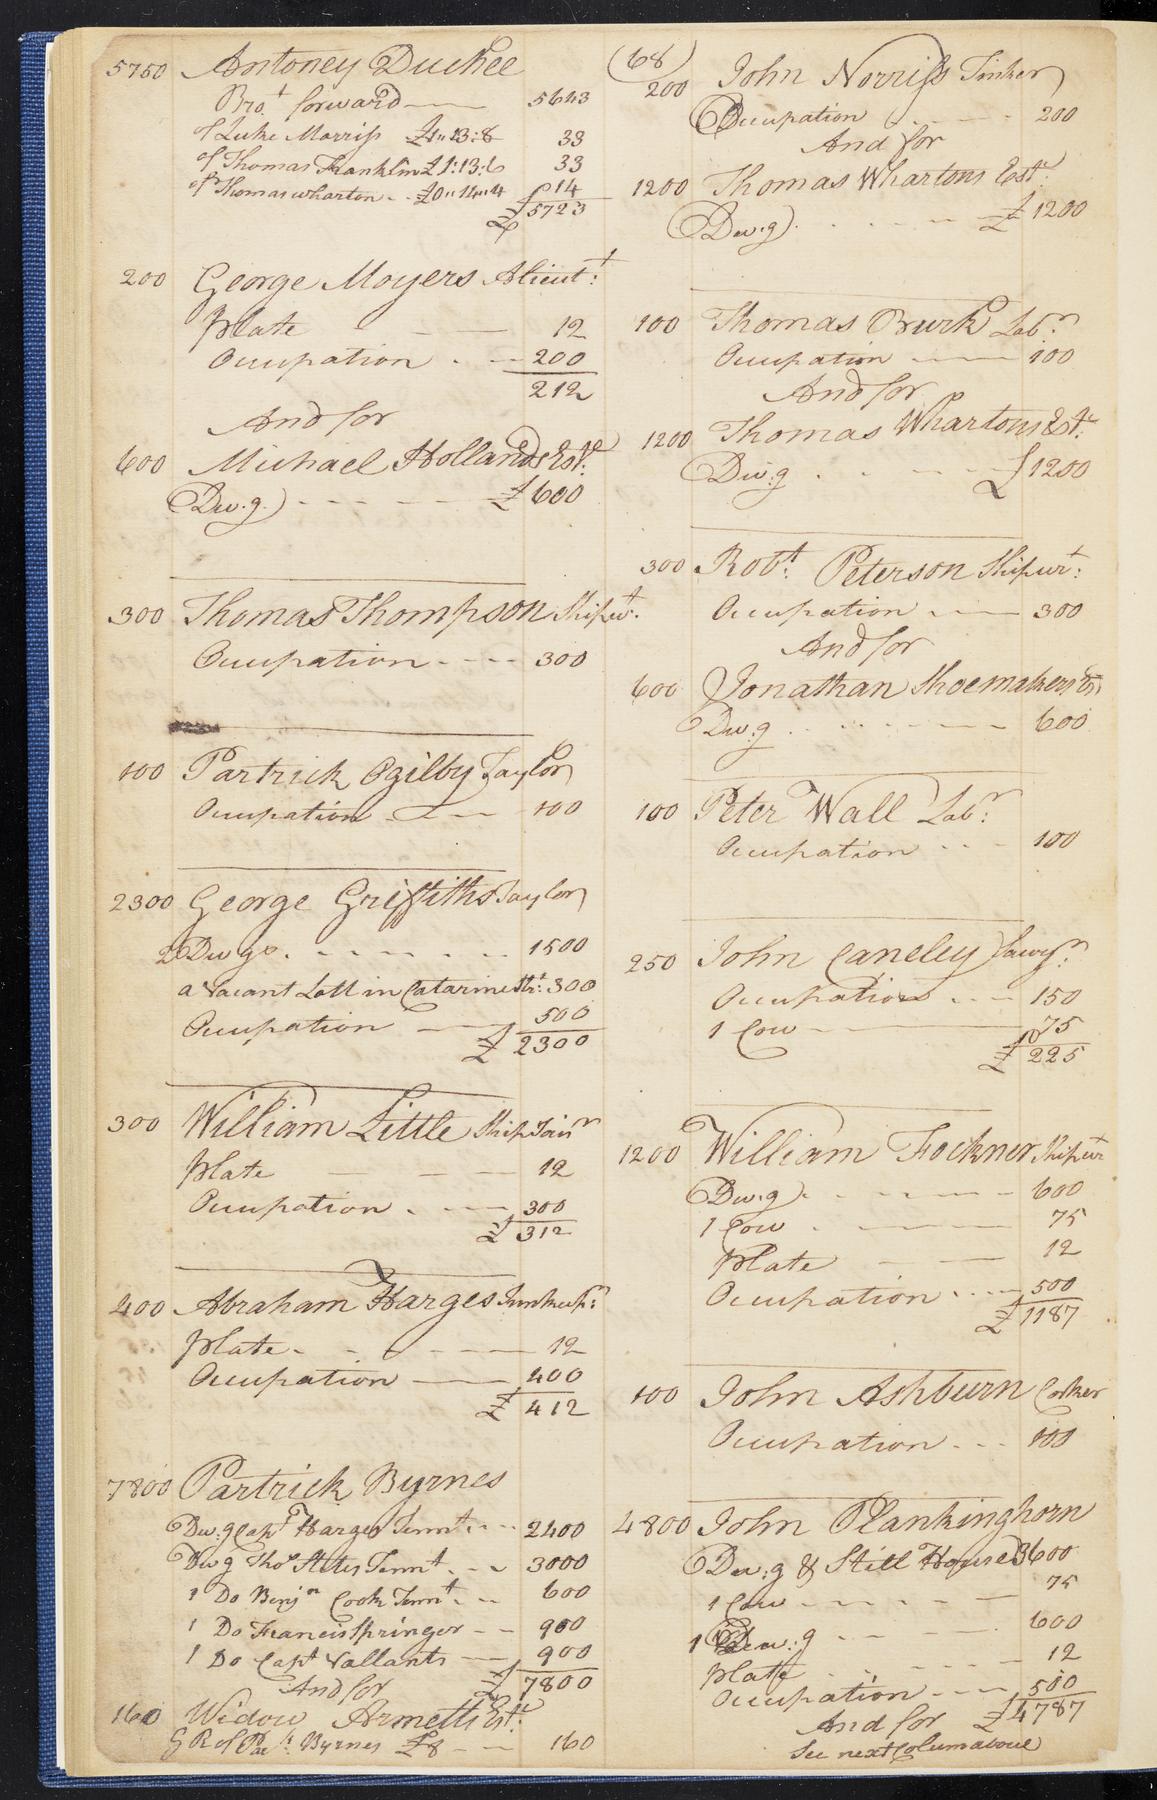 5750 Antoney Duchee
Bro.t forward 5643
of Luke Morriss £1:13:8 33
of Thomas Franklin £1:13:6 33
of Thomas wharton £0:14:4 14
£5723
200 George Moyers
Plate 12
Occupation 200
212
And for
600 Michael Hollands Est.e
Dw.g £600
300 Thomas Thompson Shipw.t
Occupation 300
100 Partrick Ogilby Taylor
Occupation 100
2300 George Griffiths Taylor
2 Dwgs. 1500
a Vacant Lott in Catarine Str:t 300
Occupation 500
£2300
300 William Little Ship Join.r
Plate 12
Occupation 300
£312
400 Abraham Harges Innkeep.r
Plate 12
Occupation 400
£412
7800 Partrick Byrnes
Dw:g Cap.t Harges Tenn.t 2400
Dw:g Tho.s Stiles Tenn.t 3000
1 Do Benj.n Cook Tenn.t 600
1 Do Francis Springer 900
1 Do Cap.t Vallants 900
£7800
And for
160 Widow Armetts Est.e
G R of Byrnes £8 160
(68)
200 John Norriss Tinker
Occupation 200
And for
1200 Thomas Whartons Est.e
Dw:g £1200
100 Thomas Burk Lab.r
Occupation 100
And for
1200 Thomas Whartons Est.e
Dw:g £1200
300 Rob.t Peterson Shipw.t
Occupation 300
And for
600 Jonathan Shoemakers Es
Dw:g 600
100 Peter Wall Lab.r
Occupation 100
250 John Caneley Sawy.r
Occupation 150
1 Cow 75
£225
1200 William Fockner Shipw.t
Dw:g 600
1 Cow 75
Plate 12
Occupation 500
£1187
100 John Ashburn Corker
Occupation 100
4800 John Plankinghorn
Dw:g & Still House 3600
1 Cow 75
1 Dw:g 600
Plate 12
Occupation 500
£4787
And for
See next Colum above